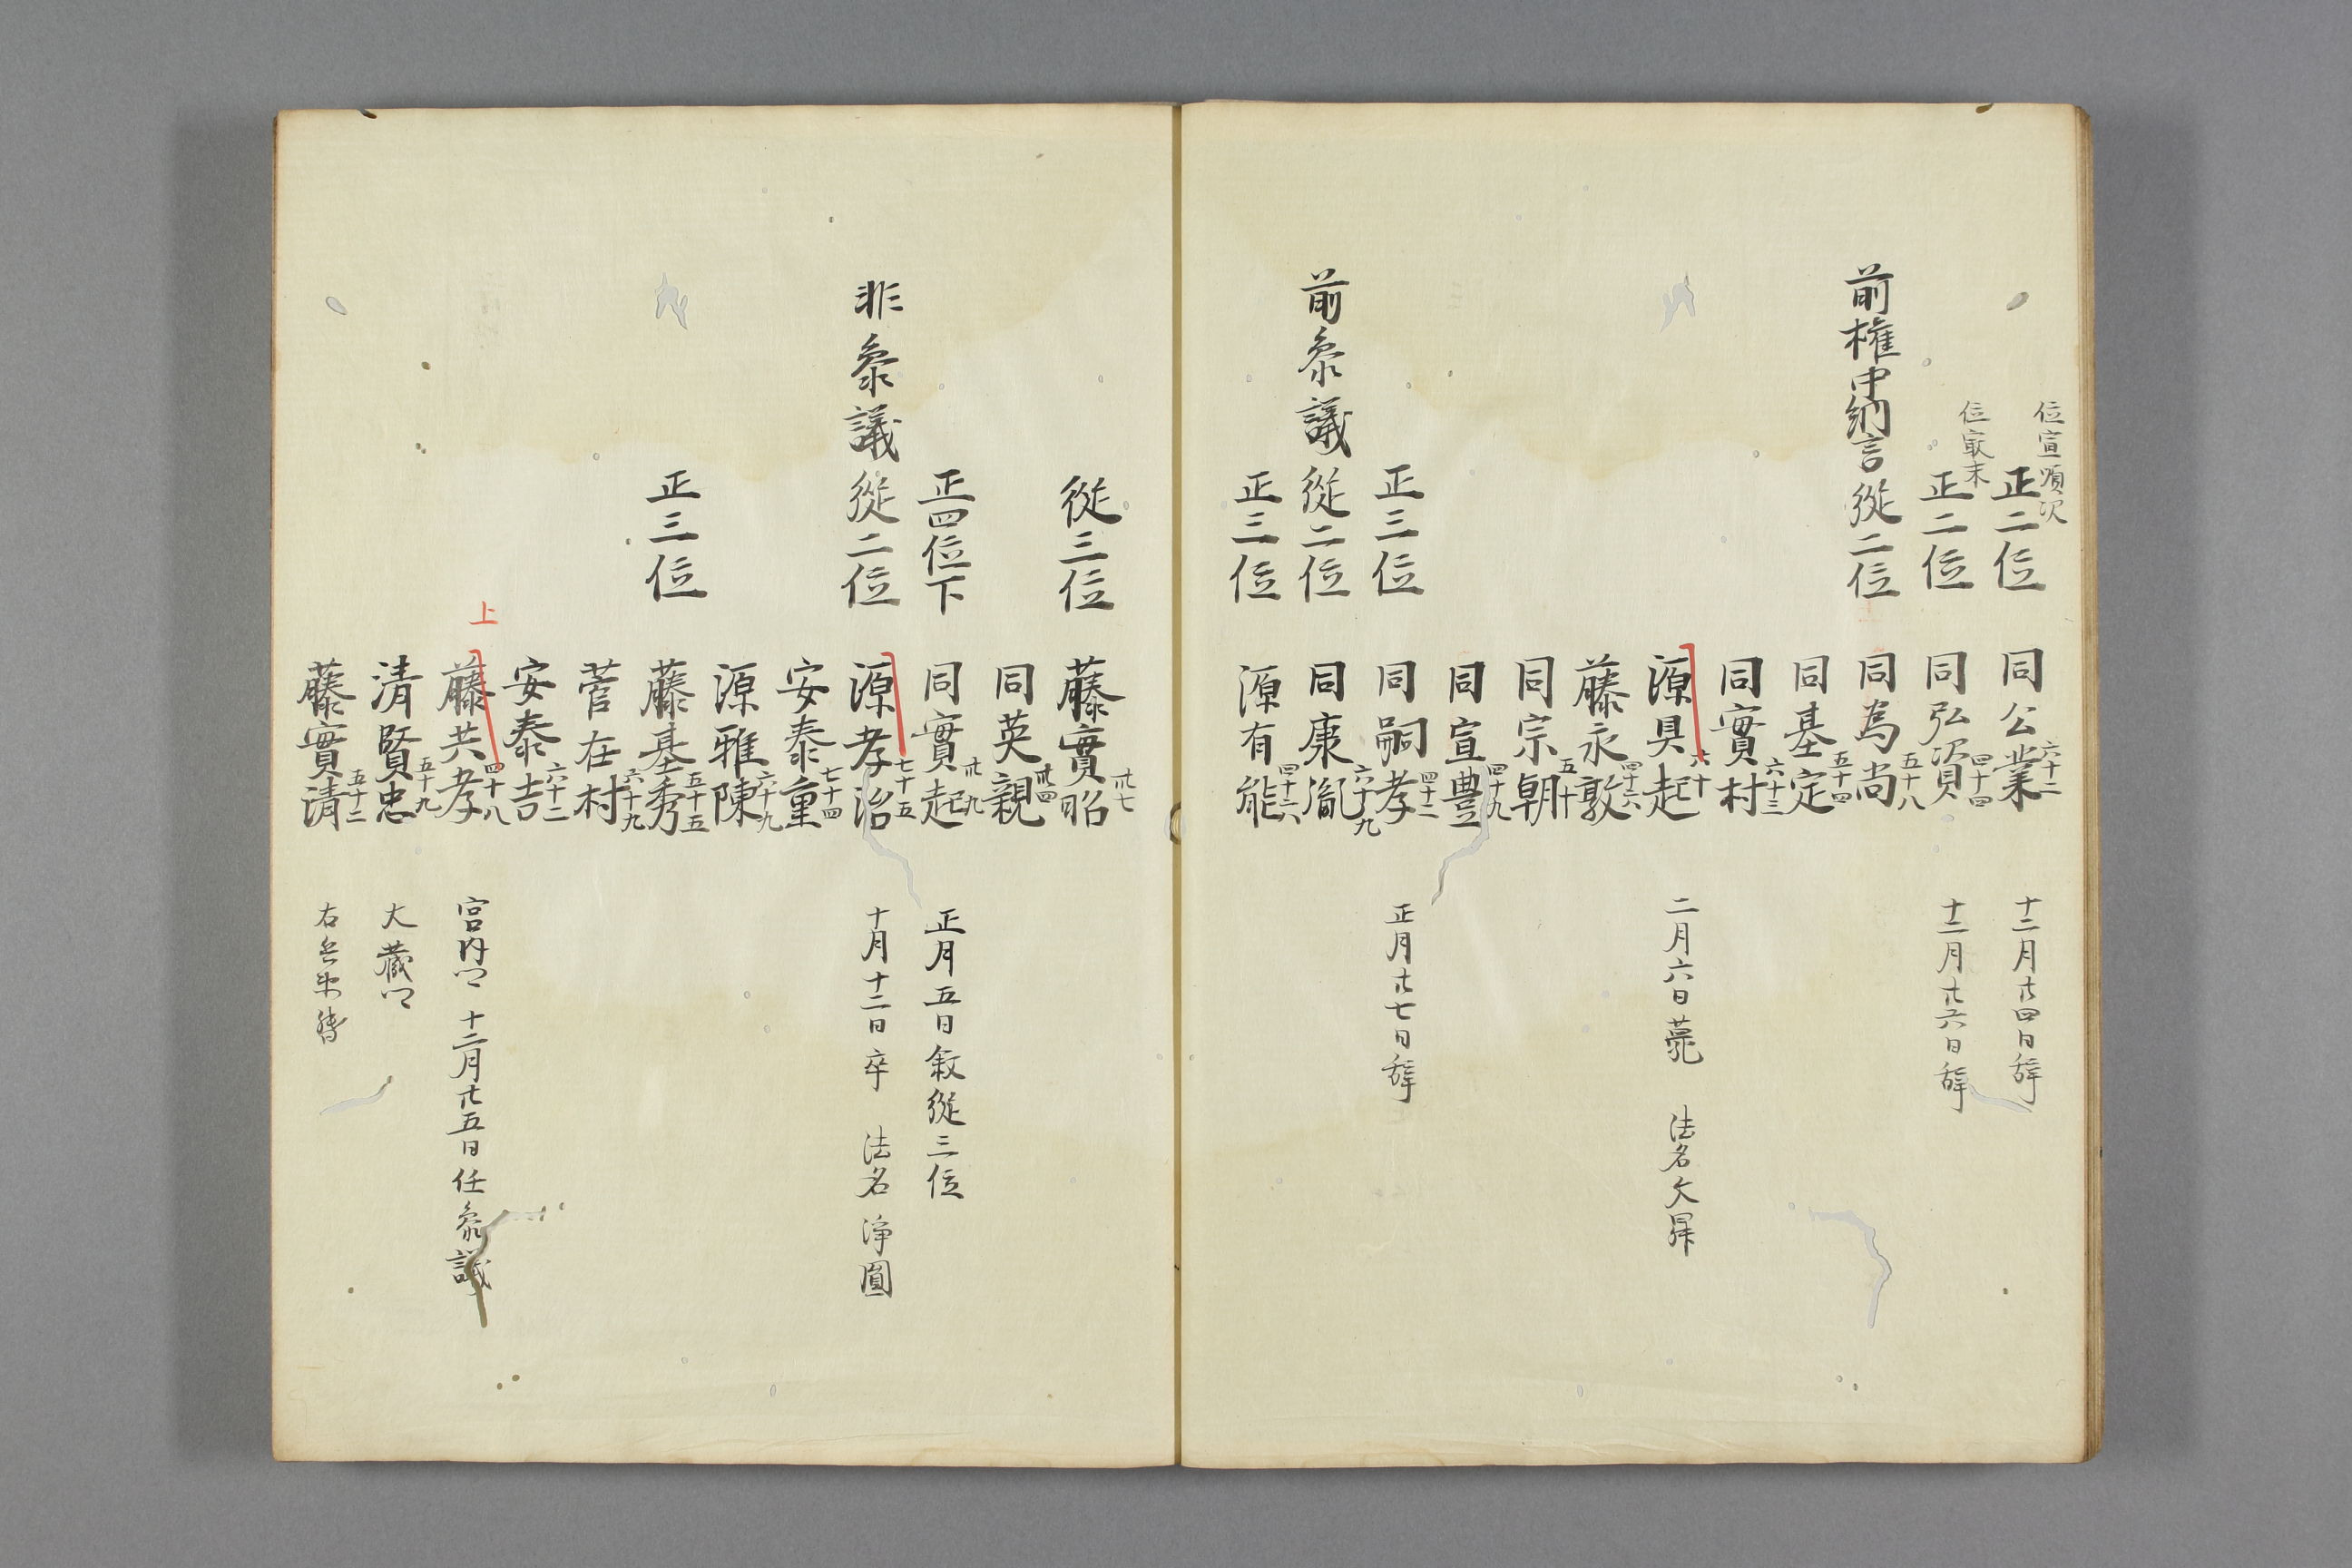 位宣順次
正二位 同公業 六十二 十二月廿四日辞
位最末
正二位 同弘資 四十四 十二月廿六日辞
前権中納言 従二位 同為尚 五十八
同基定 五十四
同實村 六十三
源具起 六十 二月六日薨 法名文昇
藤永敦 四十六
同宗朝 五十
同宣豊 四十九
正三位 同嗣孝 四十二 正月廿七日辞
前参議 従二位 同康胤 六十九
正三位 源有能 四十六
従三位 藤實昭 卅七
同英親 卅四
正四位下 同實起 卅九 正月五日叙従三位
非参議 従二位 源孝治 七十五 十月十二日卒 法名浄圓
安泰重 七十四
源雅陳 六十九
正三位 藤基秀 五十五
菅在村 六十九
安泰吉 六十二
上
藤共孝 四十八 宮内卿 十二月廿五日任参議
清賢忠 五十九 大蔵卿
藤實清 五十二 右兵衛督